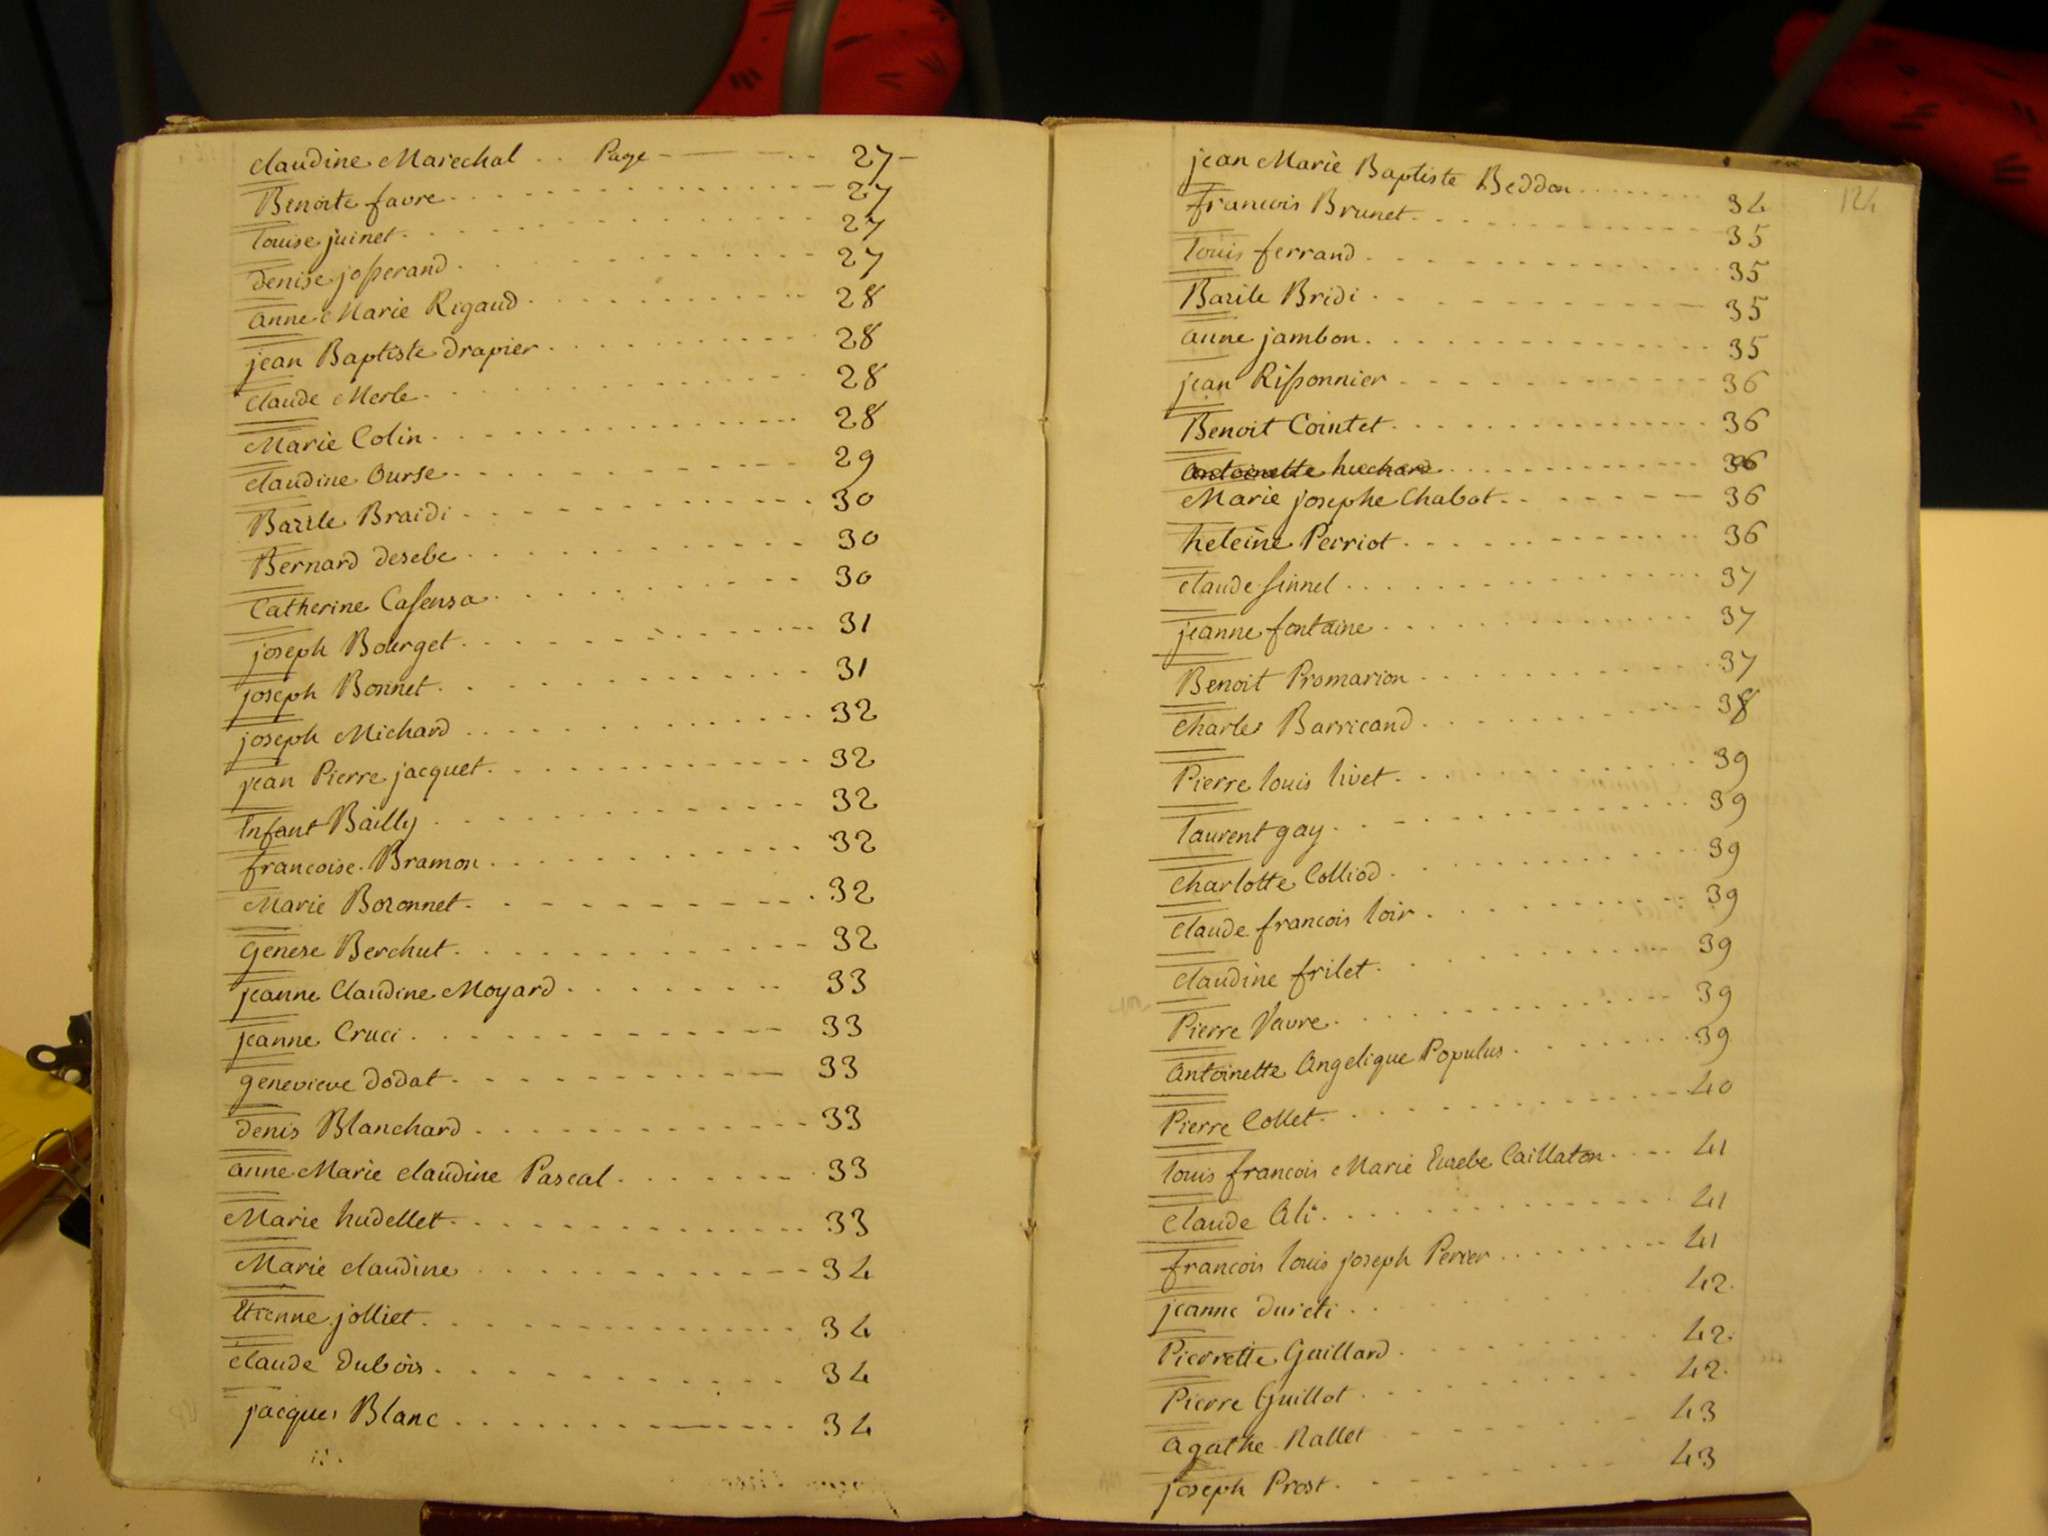 Claudine Marechal . . Page - - - - 27 -
Benoite favre 27
louise juinet 27
denise josserand 27
anne Marie Rigaud 28
jean Baptiste drapier 28
claude Merle 28
Marie Colin 28
claudine Ourse 29
Bazile Braidi 30
Bernard desebe 30
Catherine Casensa 30
joseph Bourget 31
joseph Bonnet 31
joseph Michard 32
jean Pierre jacquet 32
Enfant Bailly 32
francoise Bramon 32
Marie Boronnet 32
Genese Berchut 32
jeanne Claudine Moyard 33
jeanne Cruci 33
genevieve dodat 33
denis Blanchard 33
anne Marie claudine Pascal 33
Marie hudellet 33
Marie claudine 34
Etienne jolliet 34
claude Dubois 34
jacques Blanc 34
124
jean Marie Baptiste Beddon 34
francois Brunet 35
louis ferrand 35
Bazile Bridi 35
anne jambon 35
jean Rissonnier 36
Benoit Cointet 36
Antoinette huchard 36
Marie josephe Chabot 36
heleine Perriot 36
claude sinnel 37
jeanne fontaine 37
Benoit Promarion 37
charles Barricand 38
Pierre louis livet 39
laurent gay 39
charlotte Colliod 39
claude francois loir 39
claudine frilet 39
Pierre Vavre 39
Antoinette Angelique Populus 39
Pierre Collet 40
louis francois Marie Eusebe Caillaton 41
Claude Ali 41
francois louis joseph Perier 41
jeanne dureti 42
Pierrette Guillard 42
Pierre Guillot 42
agathe Rallet 43
joseph Prost 43